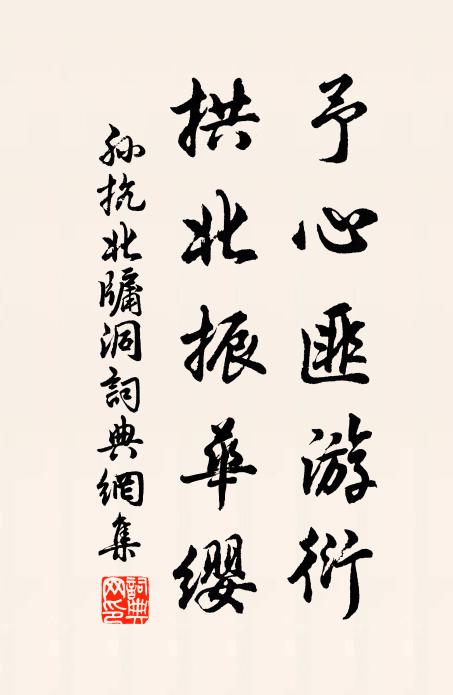 予心匪游衍
拱北振華纓
孫抗北牖洞詞典網集